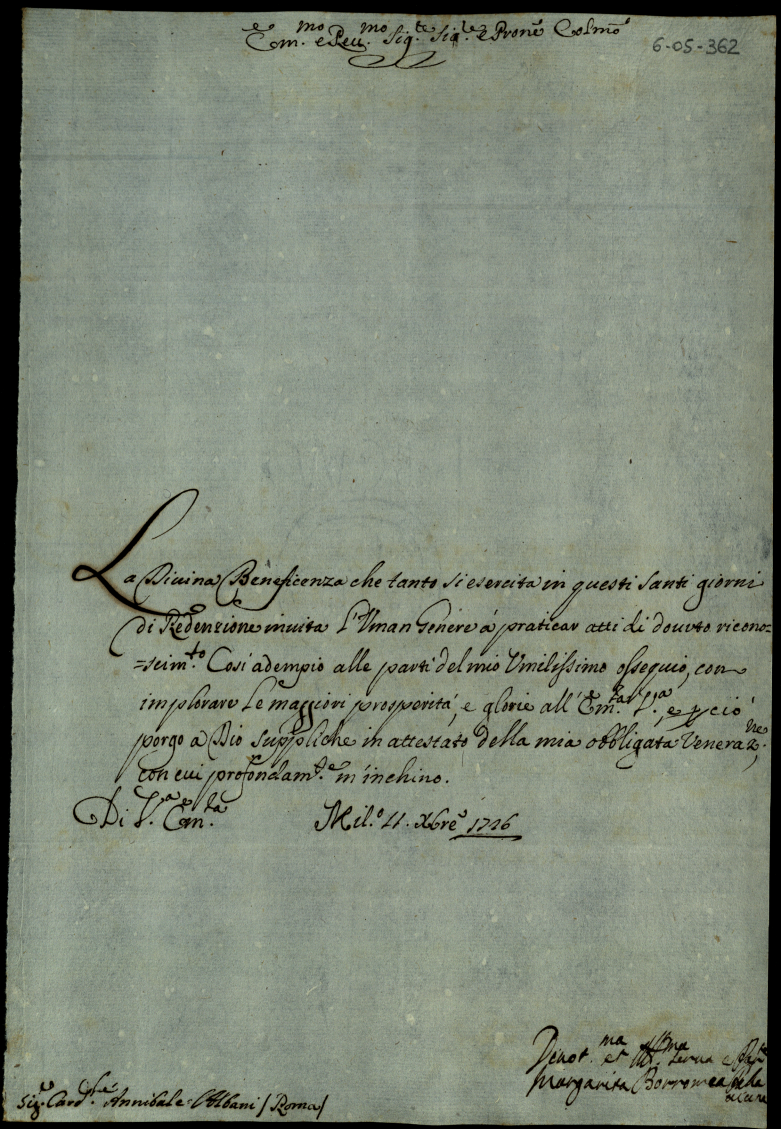 Em.mo e Reu.mo Sig.re Sig.re e Prone Colmo
6-05-362
La Diuina Beneficenza che tanto si esercita in questi Santi giorni
di Redenzione inuita l'Uman Genere á praticar atti di douuto ricono=
=scim.to Cosi adempio alle parti del mio Umilissimo ossequio, con
implorare le maggiori prosperitá, e glorie all' Em.za V.a, e pciò
porgo a Dio suppliche in attestato della mia obbligata Veneraz.ne,
con cui profondam.te m'inchino.
Di V.a Em.za Mil.o 11. Xbre 1726
Deuot.ma et Obl.ma Serua
Margarita Borromea
Sig.r Card.le Annibale Albani / Roma /